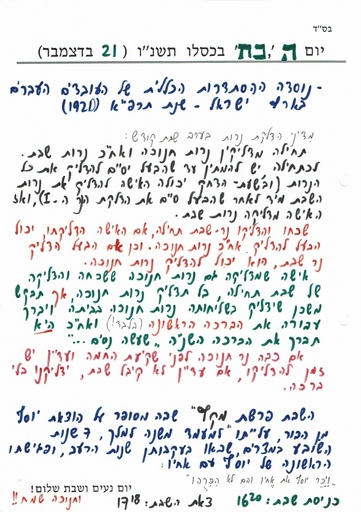 בס"ד
יום ה', כח' בכסלו תשנ"ו (21 בדצמבר)
- נוסדה ההסתדרות הכללית של העובדים העברים
בארץ ישראל - שנת תרפ"א (1920)
מדיני הדלקת נרות בערב שבת קודש:
תחילה מדליקין נרות חנוכה ואח"כ נרות שבת.
לכתחילה יש להמתין עד שהבעל יסיים להדליק את כל
הנרות (ובשעת-הדחק יכולה האישה להדליק את נרות
השבת מיד לאחר שהבעל סיים את הדלקת הנר ה-I), ואז
האישה מדליקה נרות שבת.
שכחו והדליקו נר-שבת תחילה, אם האישה הדליקתו, יכול
הבעל להדליק אח"כ נרות חנוכה. וכן אם הבעל הדליק
נר שבת, הוא יכול להדליק נרות חנוכה.
אישה שמדליקה אם נרות חנוכה ששכחה והדליקה
של שבת תחילה, כל תדליק נרות חנוכה, אך תבקש
משכן שידליק בשליחותה נרות חנוכה בביתה ויברך
עבורה את הברכה הראשונה (בלבד) ואח"כ היא
תברך את הברכה השניה "שעשה נסים..."
אם כבה נר חנוכה לפני שקיעת החמה ועדיין יש
זמן להדליקו, אם עדיין לא קיבל שבת, ידליקנו בלי
ברכה.
השבת פרשת "מקץ" שבה מסופר על הוצאת יוסף
מן הבור, עלייתו למעמד משנה למלך, 7 שנות
השובע במצרים, שבאו בעקבותן שנות הרעב, ופגישתו
הראשונה של יוסף עם אחיו:
"ויכר יוסף את אחיו והם לא הכירהו"
יום נעים ושבת שלום!
וחנוכה שמח!!
כניסת שבת: 16²⁰ צאת השבת: 17¹⁸